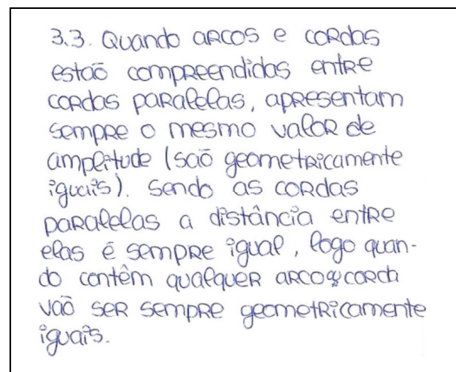 3.3. Quando arcos e cordas
estaõ compreendidos entre
cordas paralelas, apresentam
sempre o mesmo valor de
amplitude (saõ geometricamente
iguais). Sendo as cordas
paralelas a distância entre
elas é sempre igual, logo quan-
do contêm qualquer arco corda
vaõ ser sempre geometricamente
iguais.